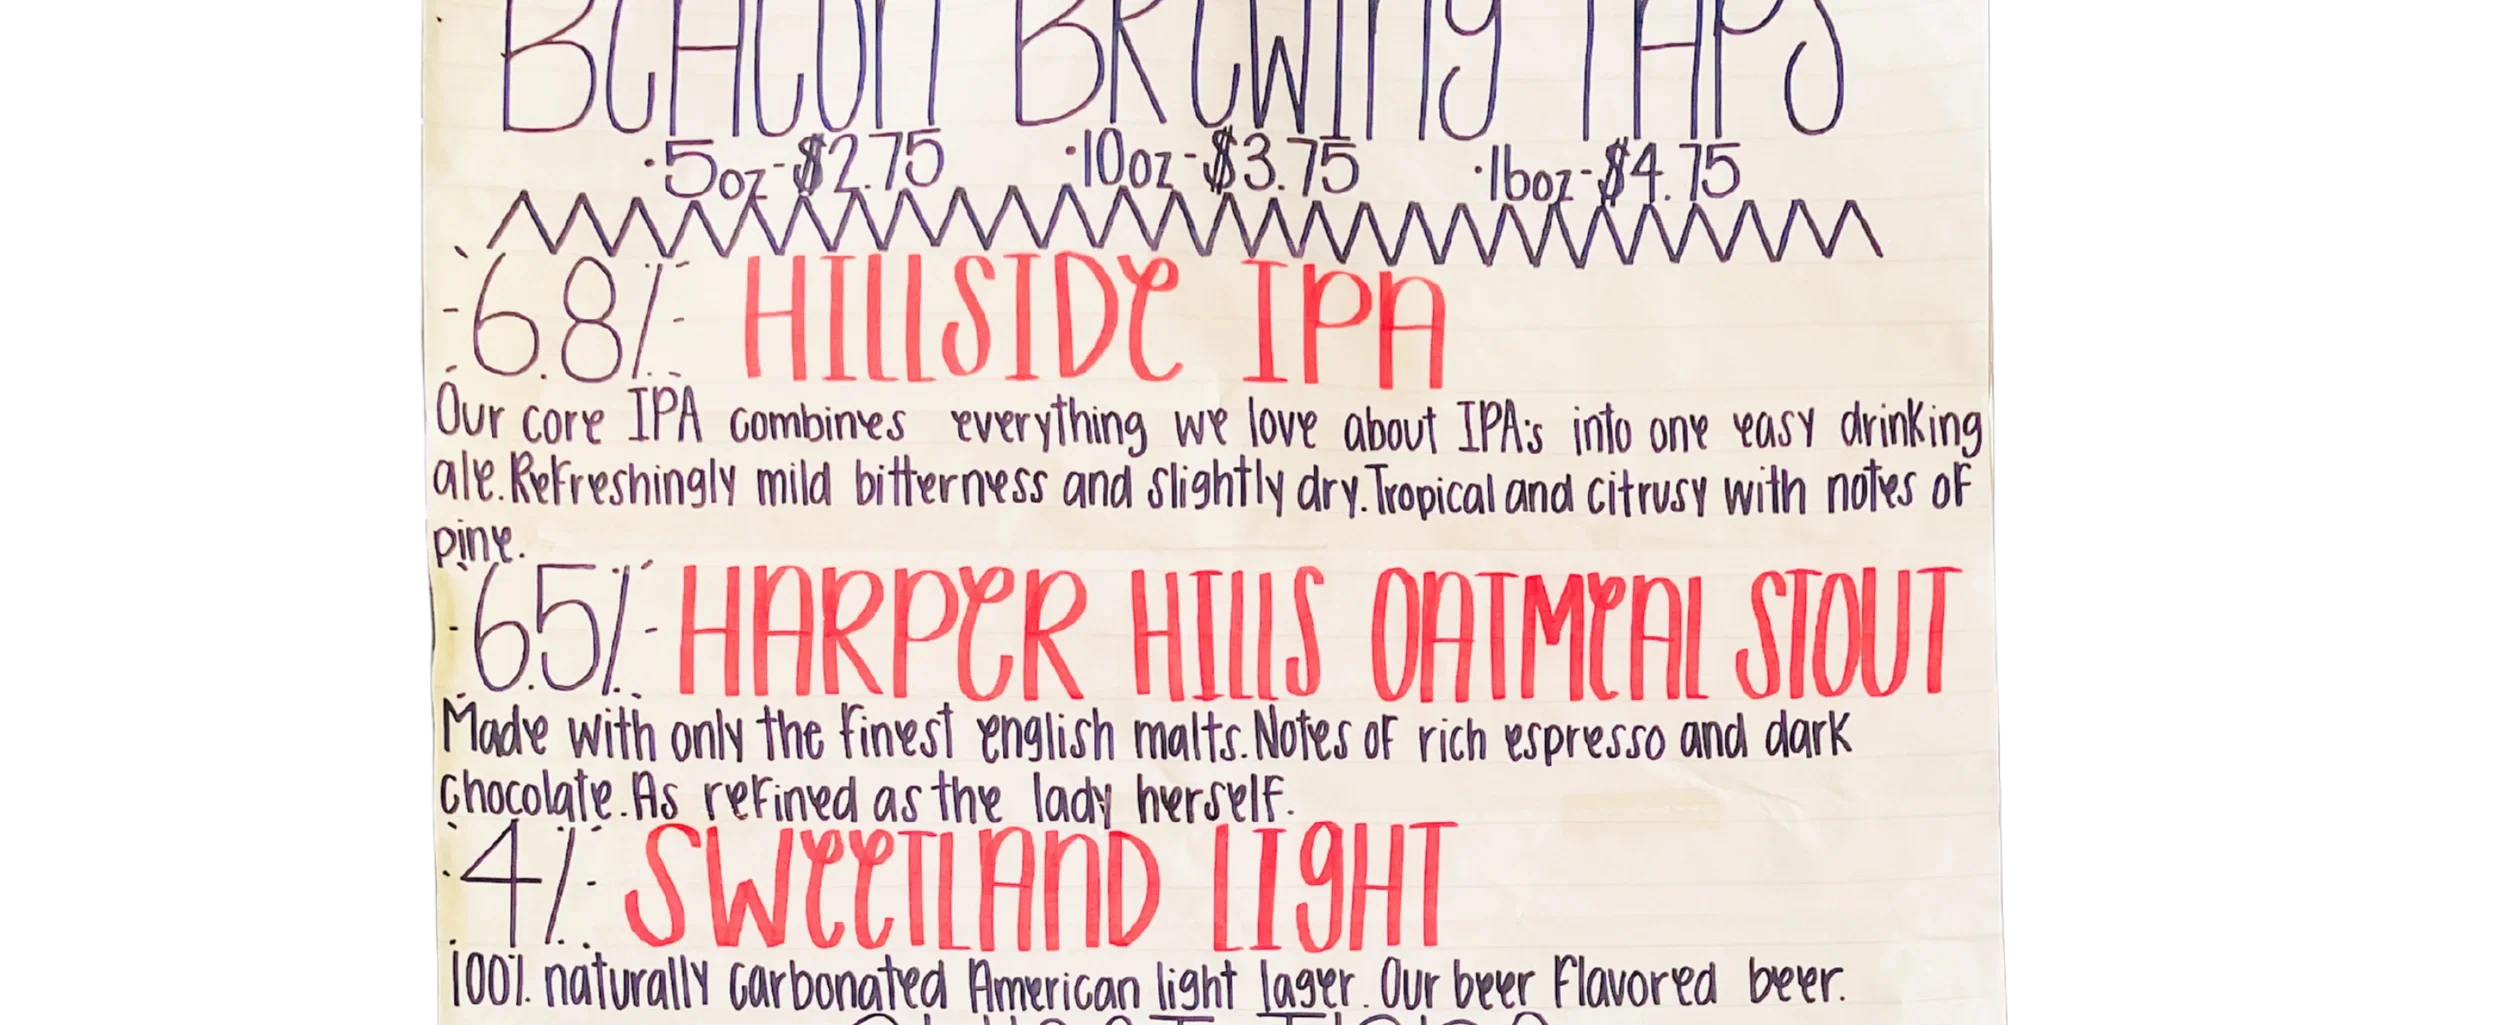 BEACON BREWING TAPS
·5oz-$2.75 ·10oz-$3.75 ·16oz-$4.75
6.8% HILLSIDE IPA
Our core IPA combines everything we love about IPA's into one easy drinking
ale. Refreshingly mild bitterness and slightly dry. Tropical and citrusy with notes of
pine.
6.5% HARPER HILLS OATMEAL STOUT
Made with only the finest english malts. Notes of rich espresso and dark
chocolate. As refined as the lady herself.
4% SWEETLAND LIGHT
100% naturally carbonated American light lager. Our beer flavored beer.